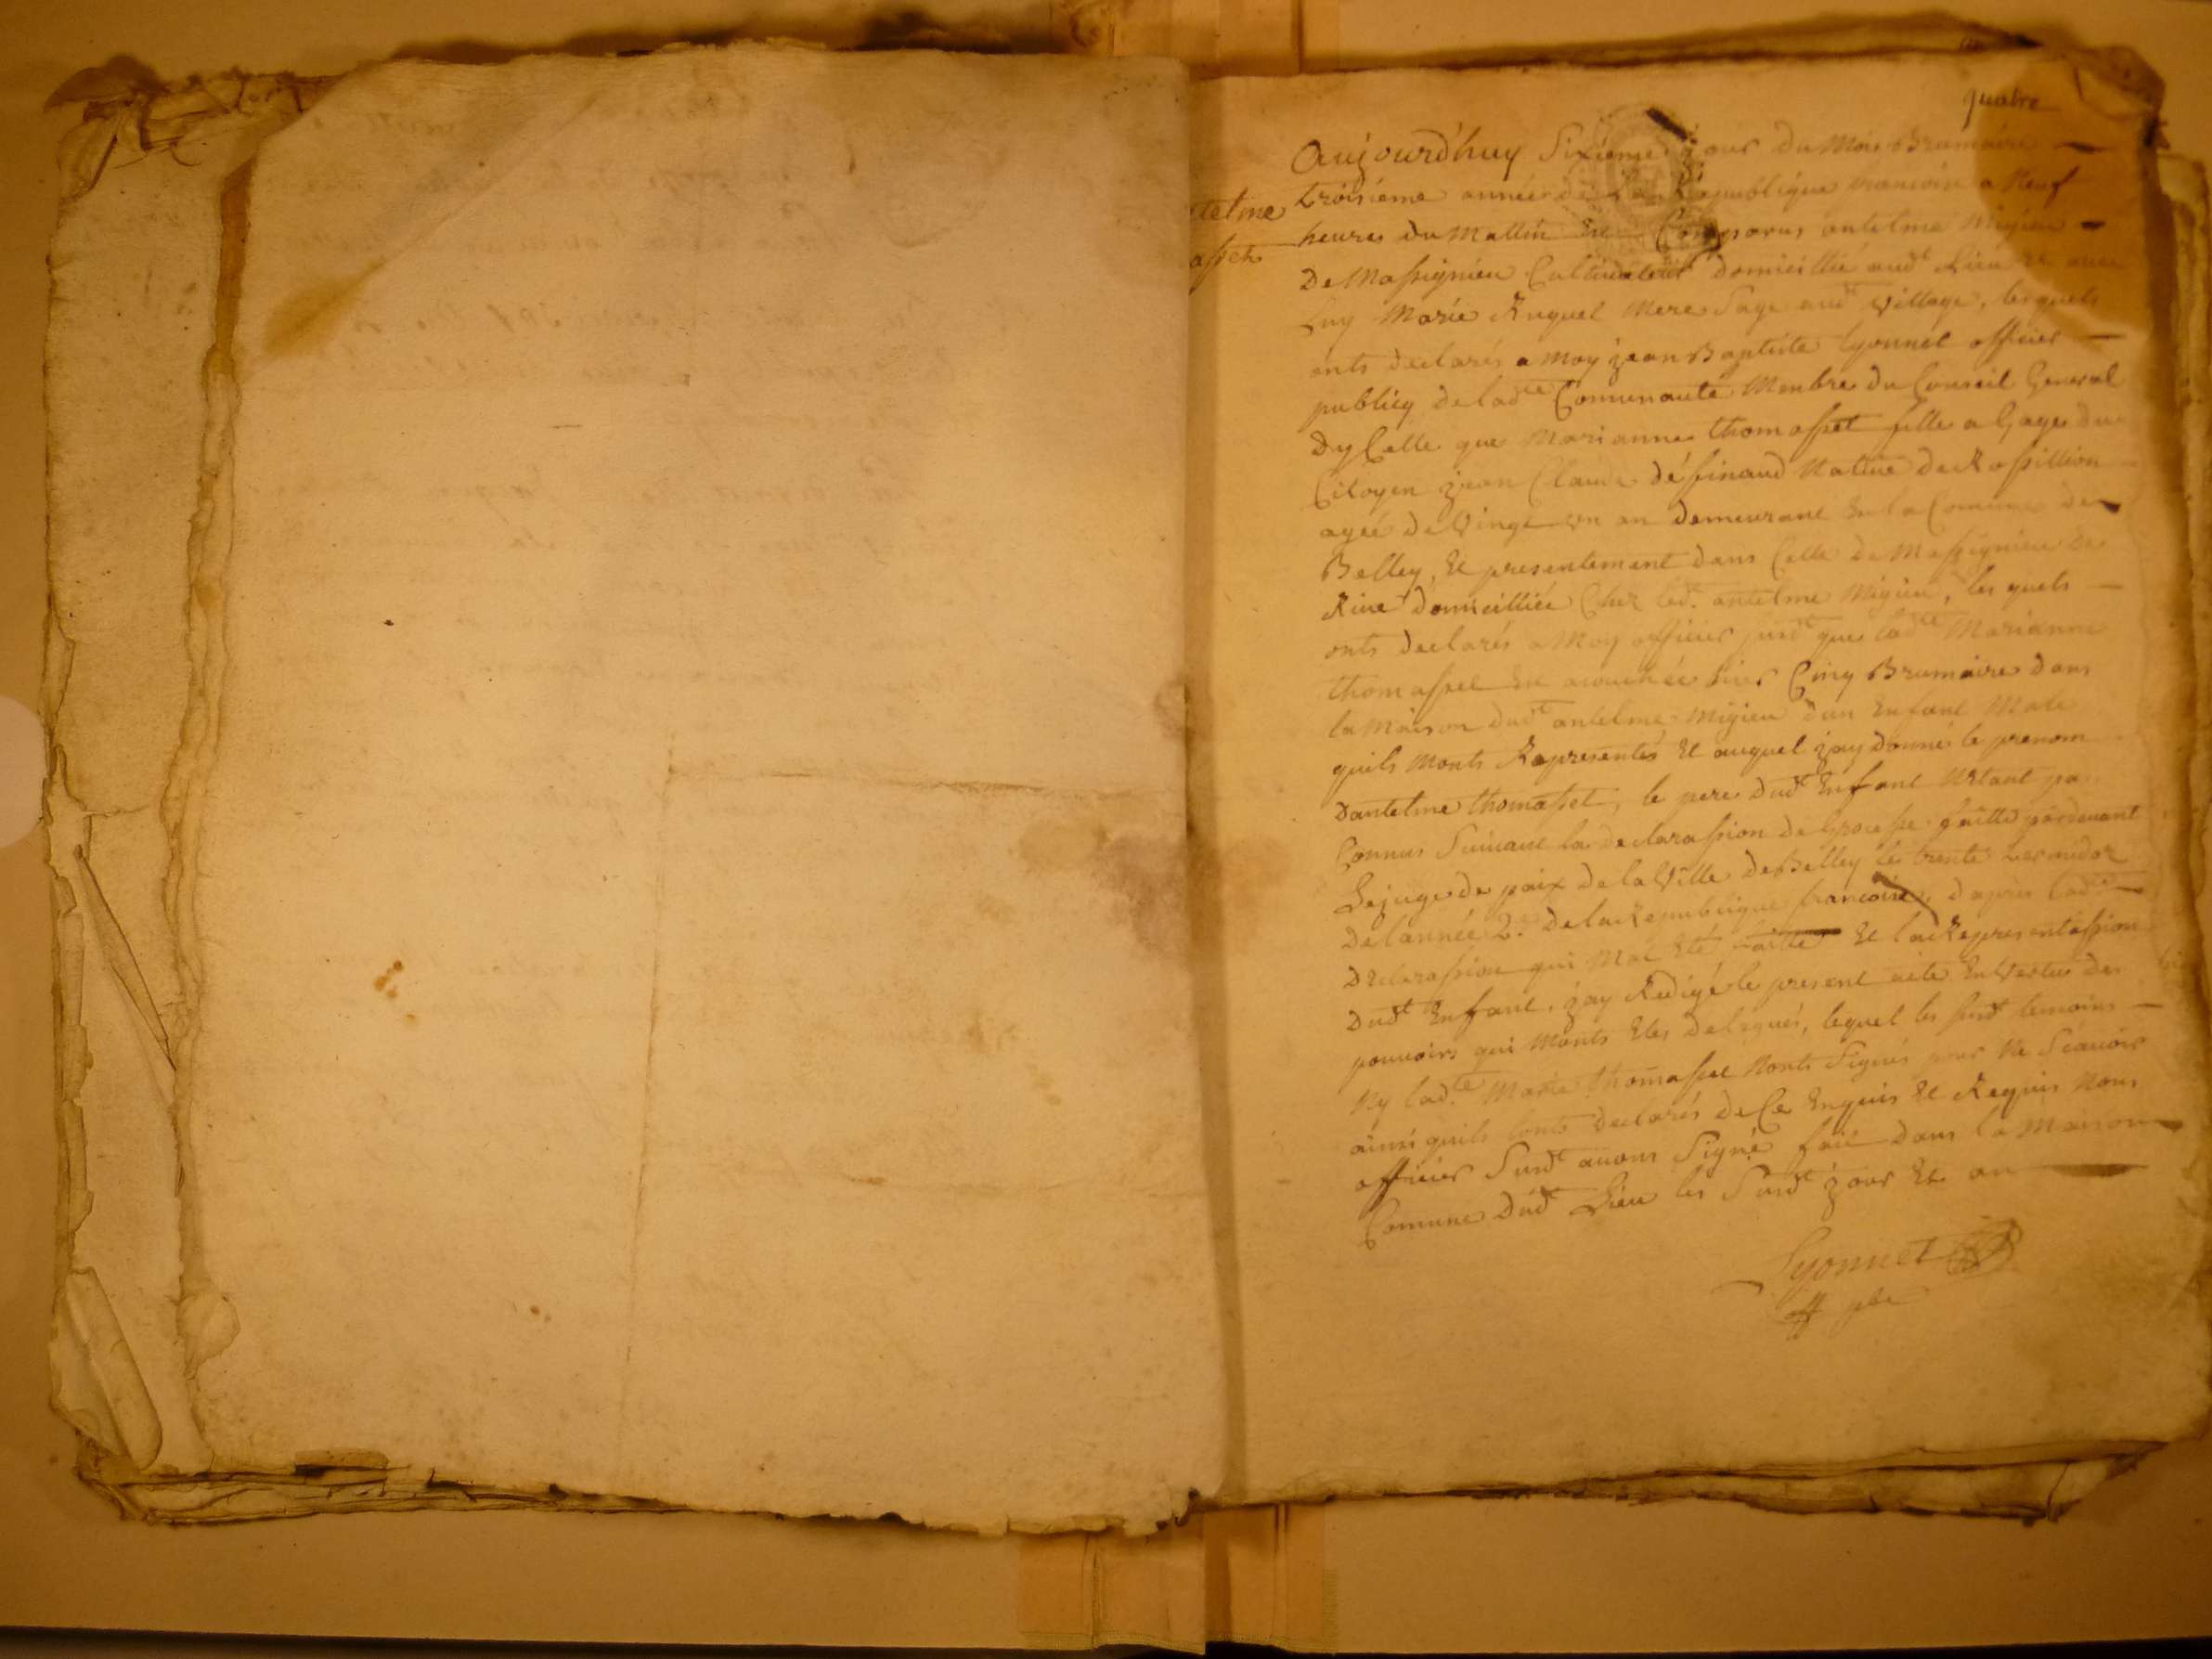 quatre
telme
asset
Aujourd'huy Sixieme jour du Mois Brumaire
troisieme année de La Republique francoise a Neuf
heures du Mattin Est Comparus antelme Migieu
De Massignieu Cultivateur domicillié aud.t Lieu et avec
Luy Marie Ruquel Mere Sage aud.t village, les quels
onts declarés a Moy jean Baptiste lyonnet officier
publicq de lad.te Communauté Menbre du Conseil General
Dy Celle que Marianne thomasset fille a Gage du
Citoyen jean Claude défsinaud Native de Rossillion
ageé de Vingt un an demeurant En la Comune de
Belley, Et presentement dans Celle de Massignieu de
Rive domicilliée Chez led.t antelme Migieu, les quels
onts declarés a Moy officier susd.t que lad.te Marianne
thomasset Est acouchée hier Cinq Brumaire dans
la Maison dud.t antelme Migieu dun Enfant Male
quils Monts Representés Et auquel jay donné le prenom
Dantelme thomasset, le pere dud.t Enfant Netant pa
Connus Suivant la declarassion de Grosesse faitte pardevant
Le juge de paix de la Ville de Belley le trente termidor
De l'année 2.e de la Republique francoise, dapres lad.te
Declarassion qui Mat Eté faitte Et la Representassion
Dud.t Enfant, jay Redigé le present acte En Vertus des
pouvoirs qui Monts Etes delegués, lequel les susd.t temoins
Ny lad.te Marie thomasset Nonts Signés pour Ne Scavoir
ainsi quils lonts declarés de Ce Enquis Et Requis Nous
officier Susd.t avons Signé fait dans la Maison
Comune dud.t Lieu les Susd.t jour Et an
Lyonnet
off pbc